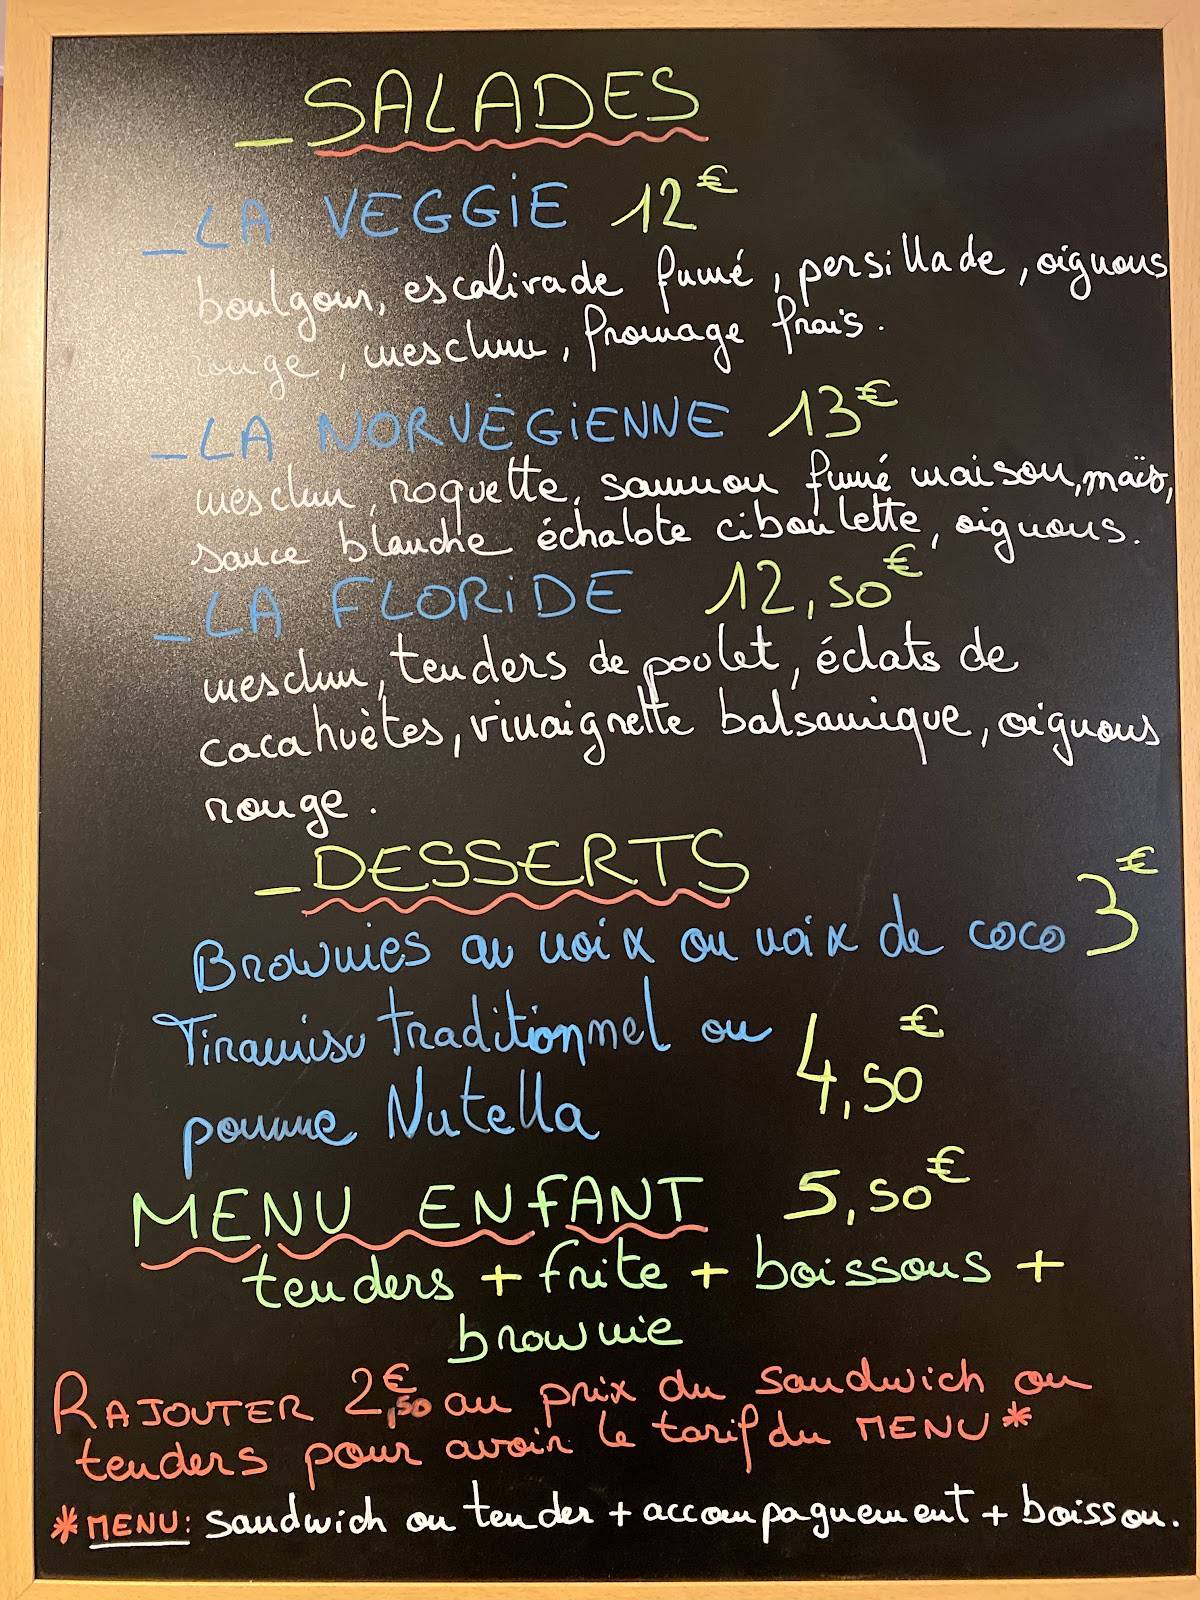 - SALADES
- LA VEGGIE 12€
boulgour, escalivade fumé, persillade, oignons
rouge, mesclun, fromage frais.
- LA NORVÉGIENNE 13€
mesclun, roquette, saumon fumé maison, maïs,
sauce blanche échalote ciboulette, oignons.
- LA FLORIDE 12,50€
mesclun, tenders de poulet, éclats de
cacahuètes, vinaigrette balsamique, oignons
rouge.
- DESSERTS
Brownies au noix ou noix de coco 3€
Tiramisu traditionnel ou
pomme Nutella 4,50€
MENU ENFANT 5,50€
tenders + frite + boissons +
brownie
RAJOUTER 2€,50 au prix du sandwich ou
tenders pour avoir le tarif du MENU*
*MENU: sandwich ou tender + accompagnement + boisson.